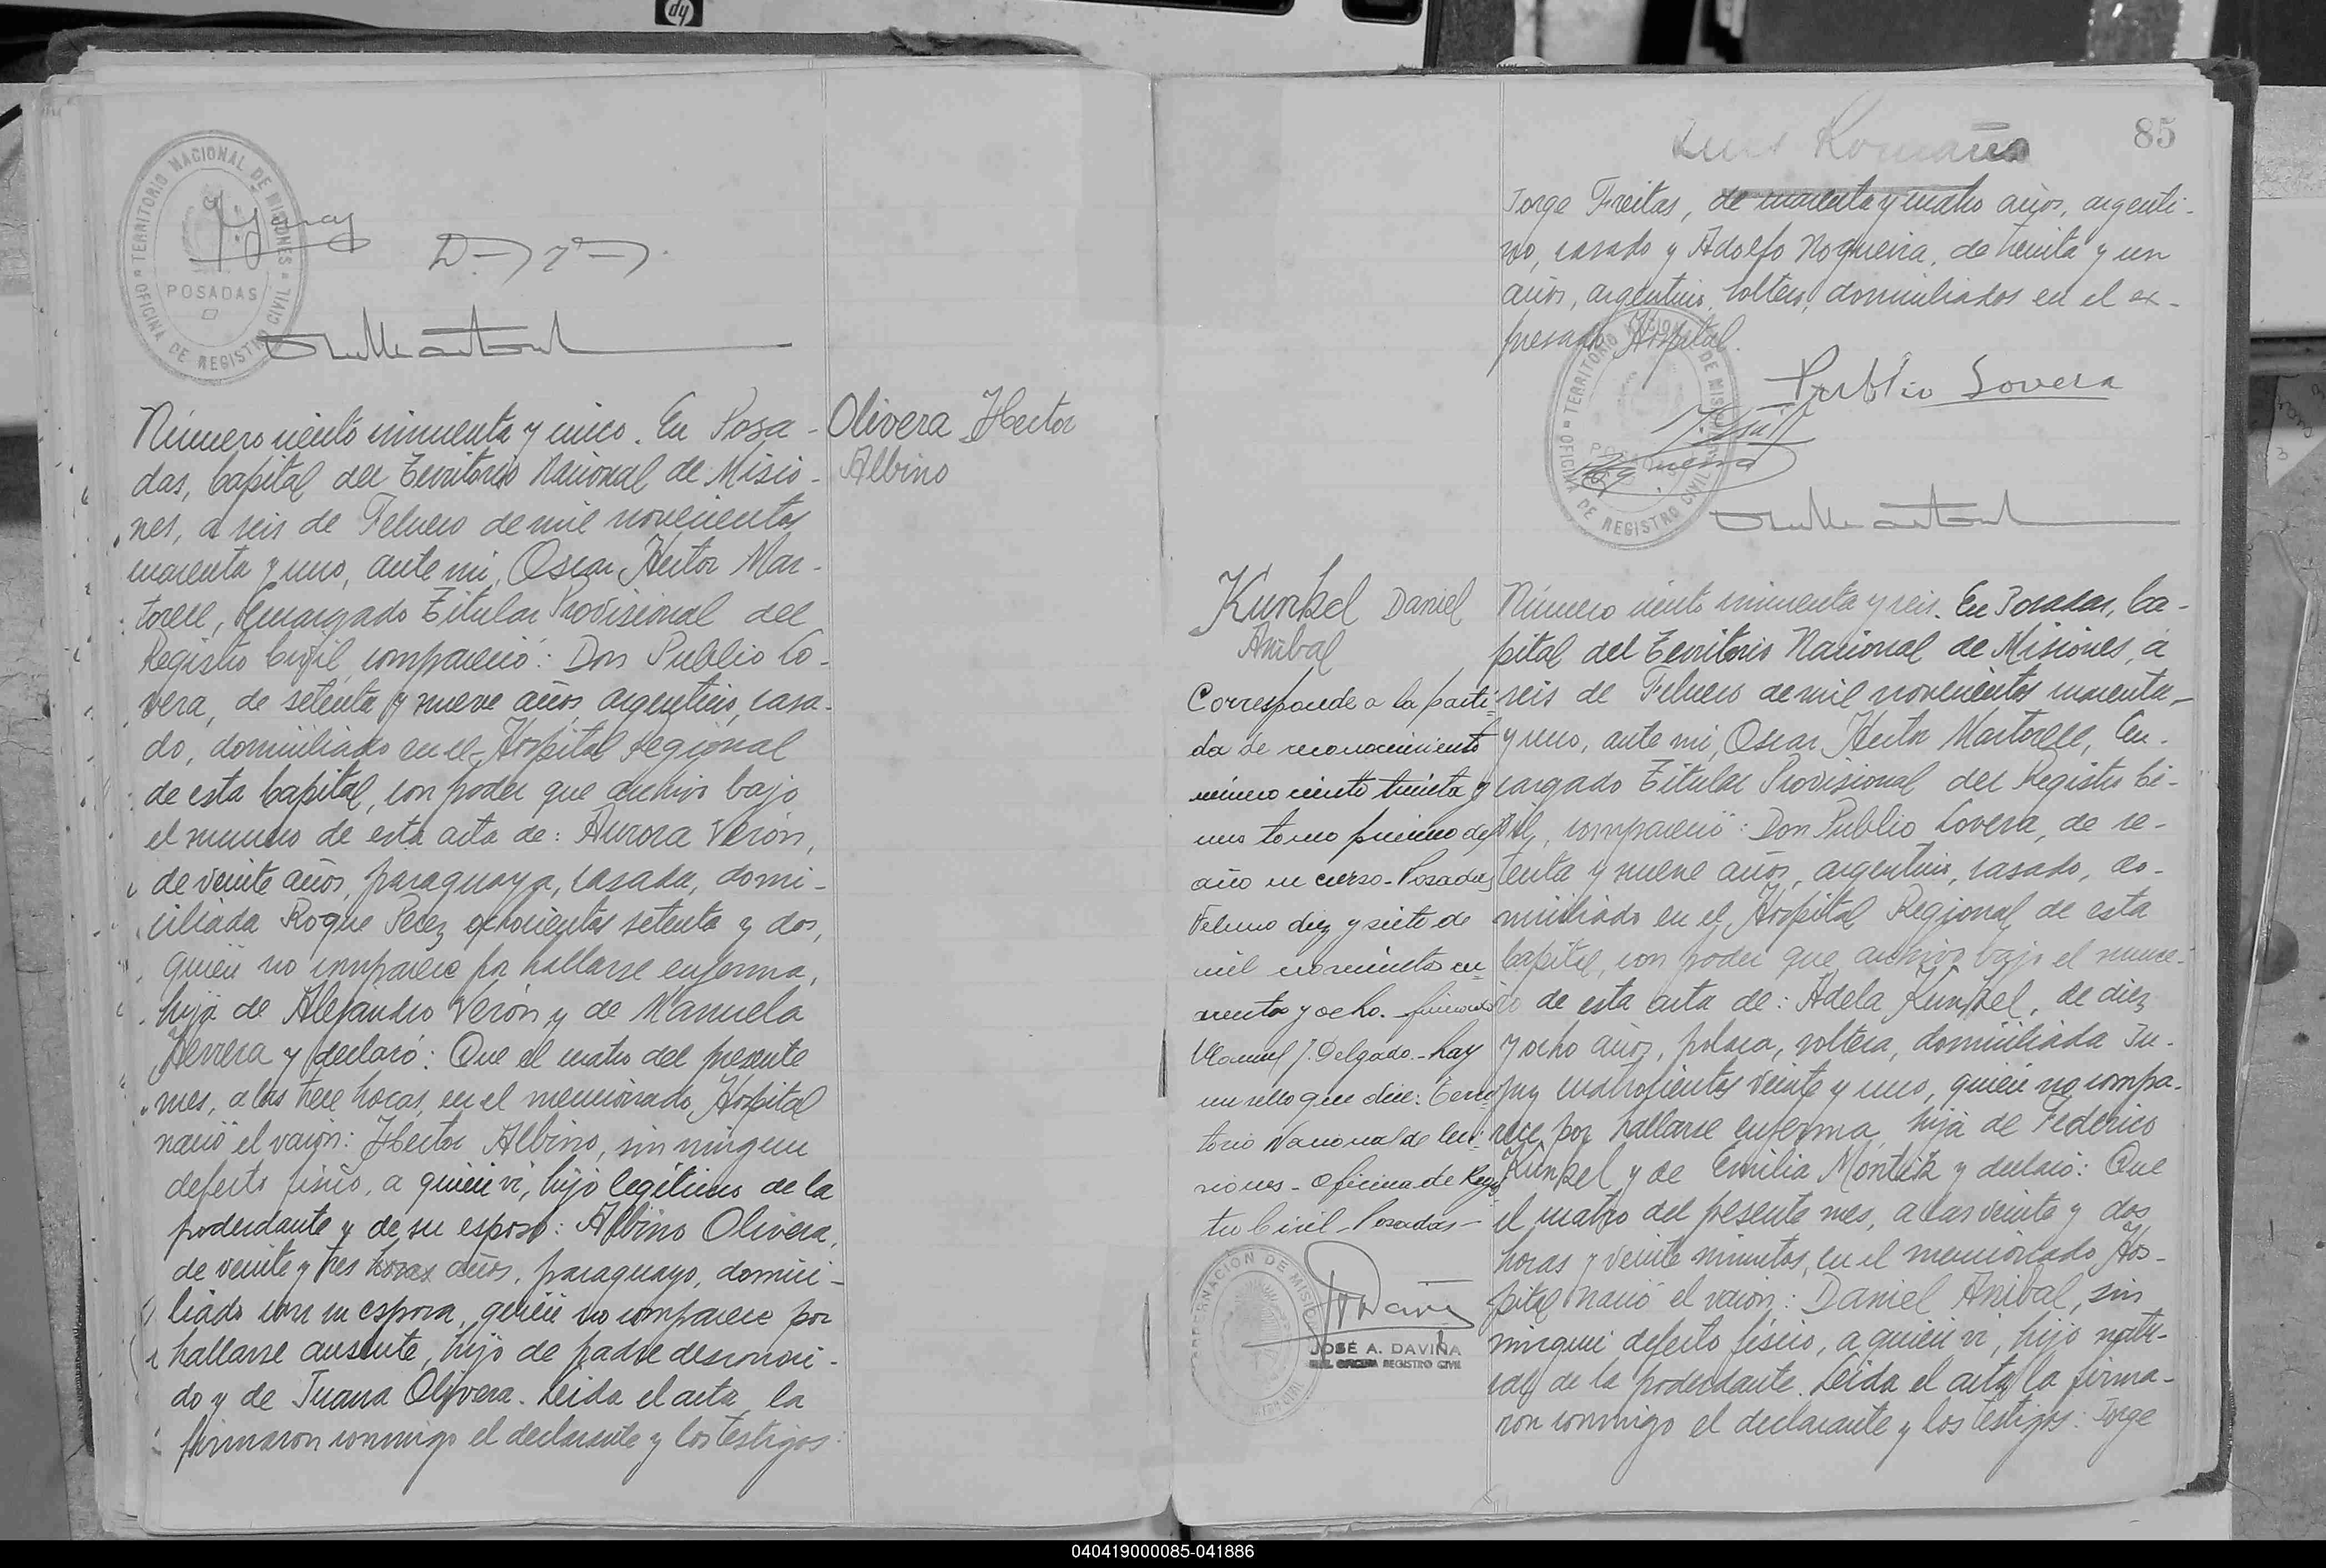 hp
TERRITORIO NACIONAL DE MISIONES
POSADAS
OFICINA DE REGISTRO CIVIL
Olivera Hector
Albino
Número ciento cincuenta y cinco. En Posa-
das, Capital del Territorio Nacional de Misio-
nes, a seis de Febrero de mil novecientos
cuarenta y uno, ante mi, Oscar Hector Mar-
torell, Encargado Titular Provisional del
Registro Civil, compareció: Don Publio Lo-
vera, de setenta y nueve años, argentino, casa-
do, domiciliado en el Hospital Regional
de esta Capital, con poder que archivo bajo
el numero de esta acta de: Aurora Verón,
de veinte años, paraguaya, casada, domi-
ciliada Roque Perez ochocientos setenta y dos,
quien no comparece por hallarse enferma,
hija de Alejandro Verón y de Manuela
Herrera y declaró: Que el cuatro del presente
mes, a las trece horas, en el mencionado Hospital
nació el varón: Hector Albino, sin ningun
defecto fisico, a quien vi, hijo legitimo de la
poderdante y de su esposo: Albino Olivera,
de veinte y tres horas años, paraguayo, domici-
liado con su esposa, quien no comparece por
hallarse ausente, hijo de padre desconoci-
do y de Juana Olivera. Leida el acta, la
firmaron conmigo el declarante y los testigos:
85
Luis Romaña
Jorge Freitas, de cuarenta y cuatro años, argenti-
no, casado y Adolfo Nogueira, de treinta y un
años, argentino, soltero, domiciliados en el ex-
presado Hospital.
Publio Lovera
TERRITORIO NACIONAL DE MISIONES
POSADAS
OFICINA DE REGISTRO CIVIL
Kunkel Daniel
Anibal
Corresponde a la parti-
da de reconocimiento
número ciento treinta y
uno tomo primero del
año en curso - Posadas
Febrero diez y siete de
mil novecientos cu-
arenta y ocho. - firmado
Manuel J. Delgado. - hay
un sello que dice: Terri-
torio Nacional de Mi-
siones - Oficina de Regis-
tro Civil - Posadas -
GOBERNACION DE MISIONES
JOSÉ A. DAVIÑA
REGISTRO CIVIL
Número ciento cincuenta y seis. En Posadas, Ca-
pital del Territorio Nacional de Misiones, a
seis de Febrero de mil novecientos cuarenta
y uno, ante mi, Oscar Hector Martorell, En-
cargado Titular Provisional del Registro Ci-
vil, compareció: Don Publio Lovera, de se-
tenta y nueve años, argentino, casado, do-
miciliado en el Hospital Regional de esta
Capital, con poder que archivo bajo el nume-
ro de esta acta de: Adela Kunkel, de diez
y ocho años, polaca, soltera, domiciliada Ju-
juy cuatrocientos veinte y uno, quien no compa-
rece por hallarse enferma, hija de Federico
Kunkel y de Emilia Montik y declaró: Que
el cuatro del presente mes, a las veinte y dos
horas y veinte minutos, en el mencionado Hos-
pital nació el varón: Daniel Anibal, sin
ningun defecto fisico, a quien vi, hijo natu-
ral de la poderdante. Leida el acta, la firma-
ron conmigo el declarante y los testigos: Jorge
040419000085-041886